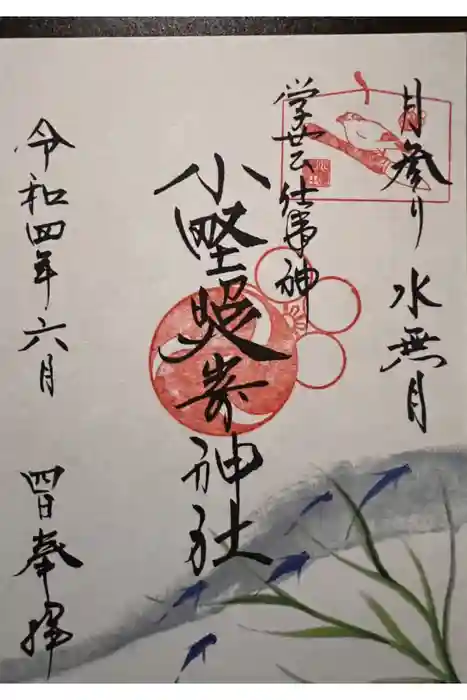 月参り 水無月
学芸仕事神
小野照崎神社
令和四年六月
四日奉拝